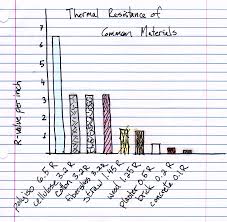 Thermal Resistance of
Common Materials
R-value per inch
7
6
5
4
3
2
1
polyiso 6.5 R
cellulose 3.2 R
cotton 3.2 R
fiberglass 3.2 R
straw 1.45 R
wood 1.25 R
plaster 0.6 R
brick 0.2 R
concrete 0.1 R